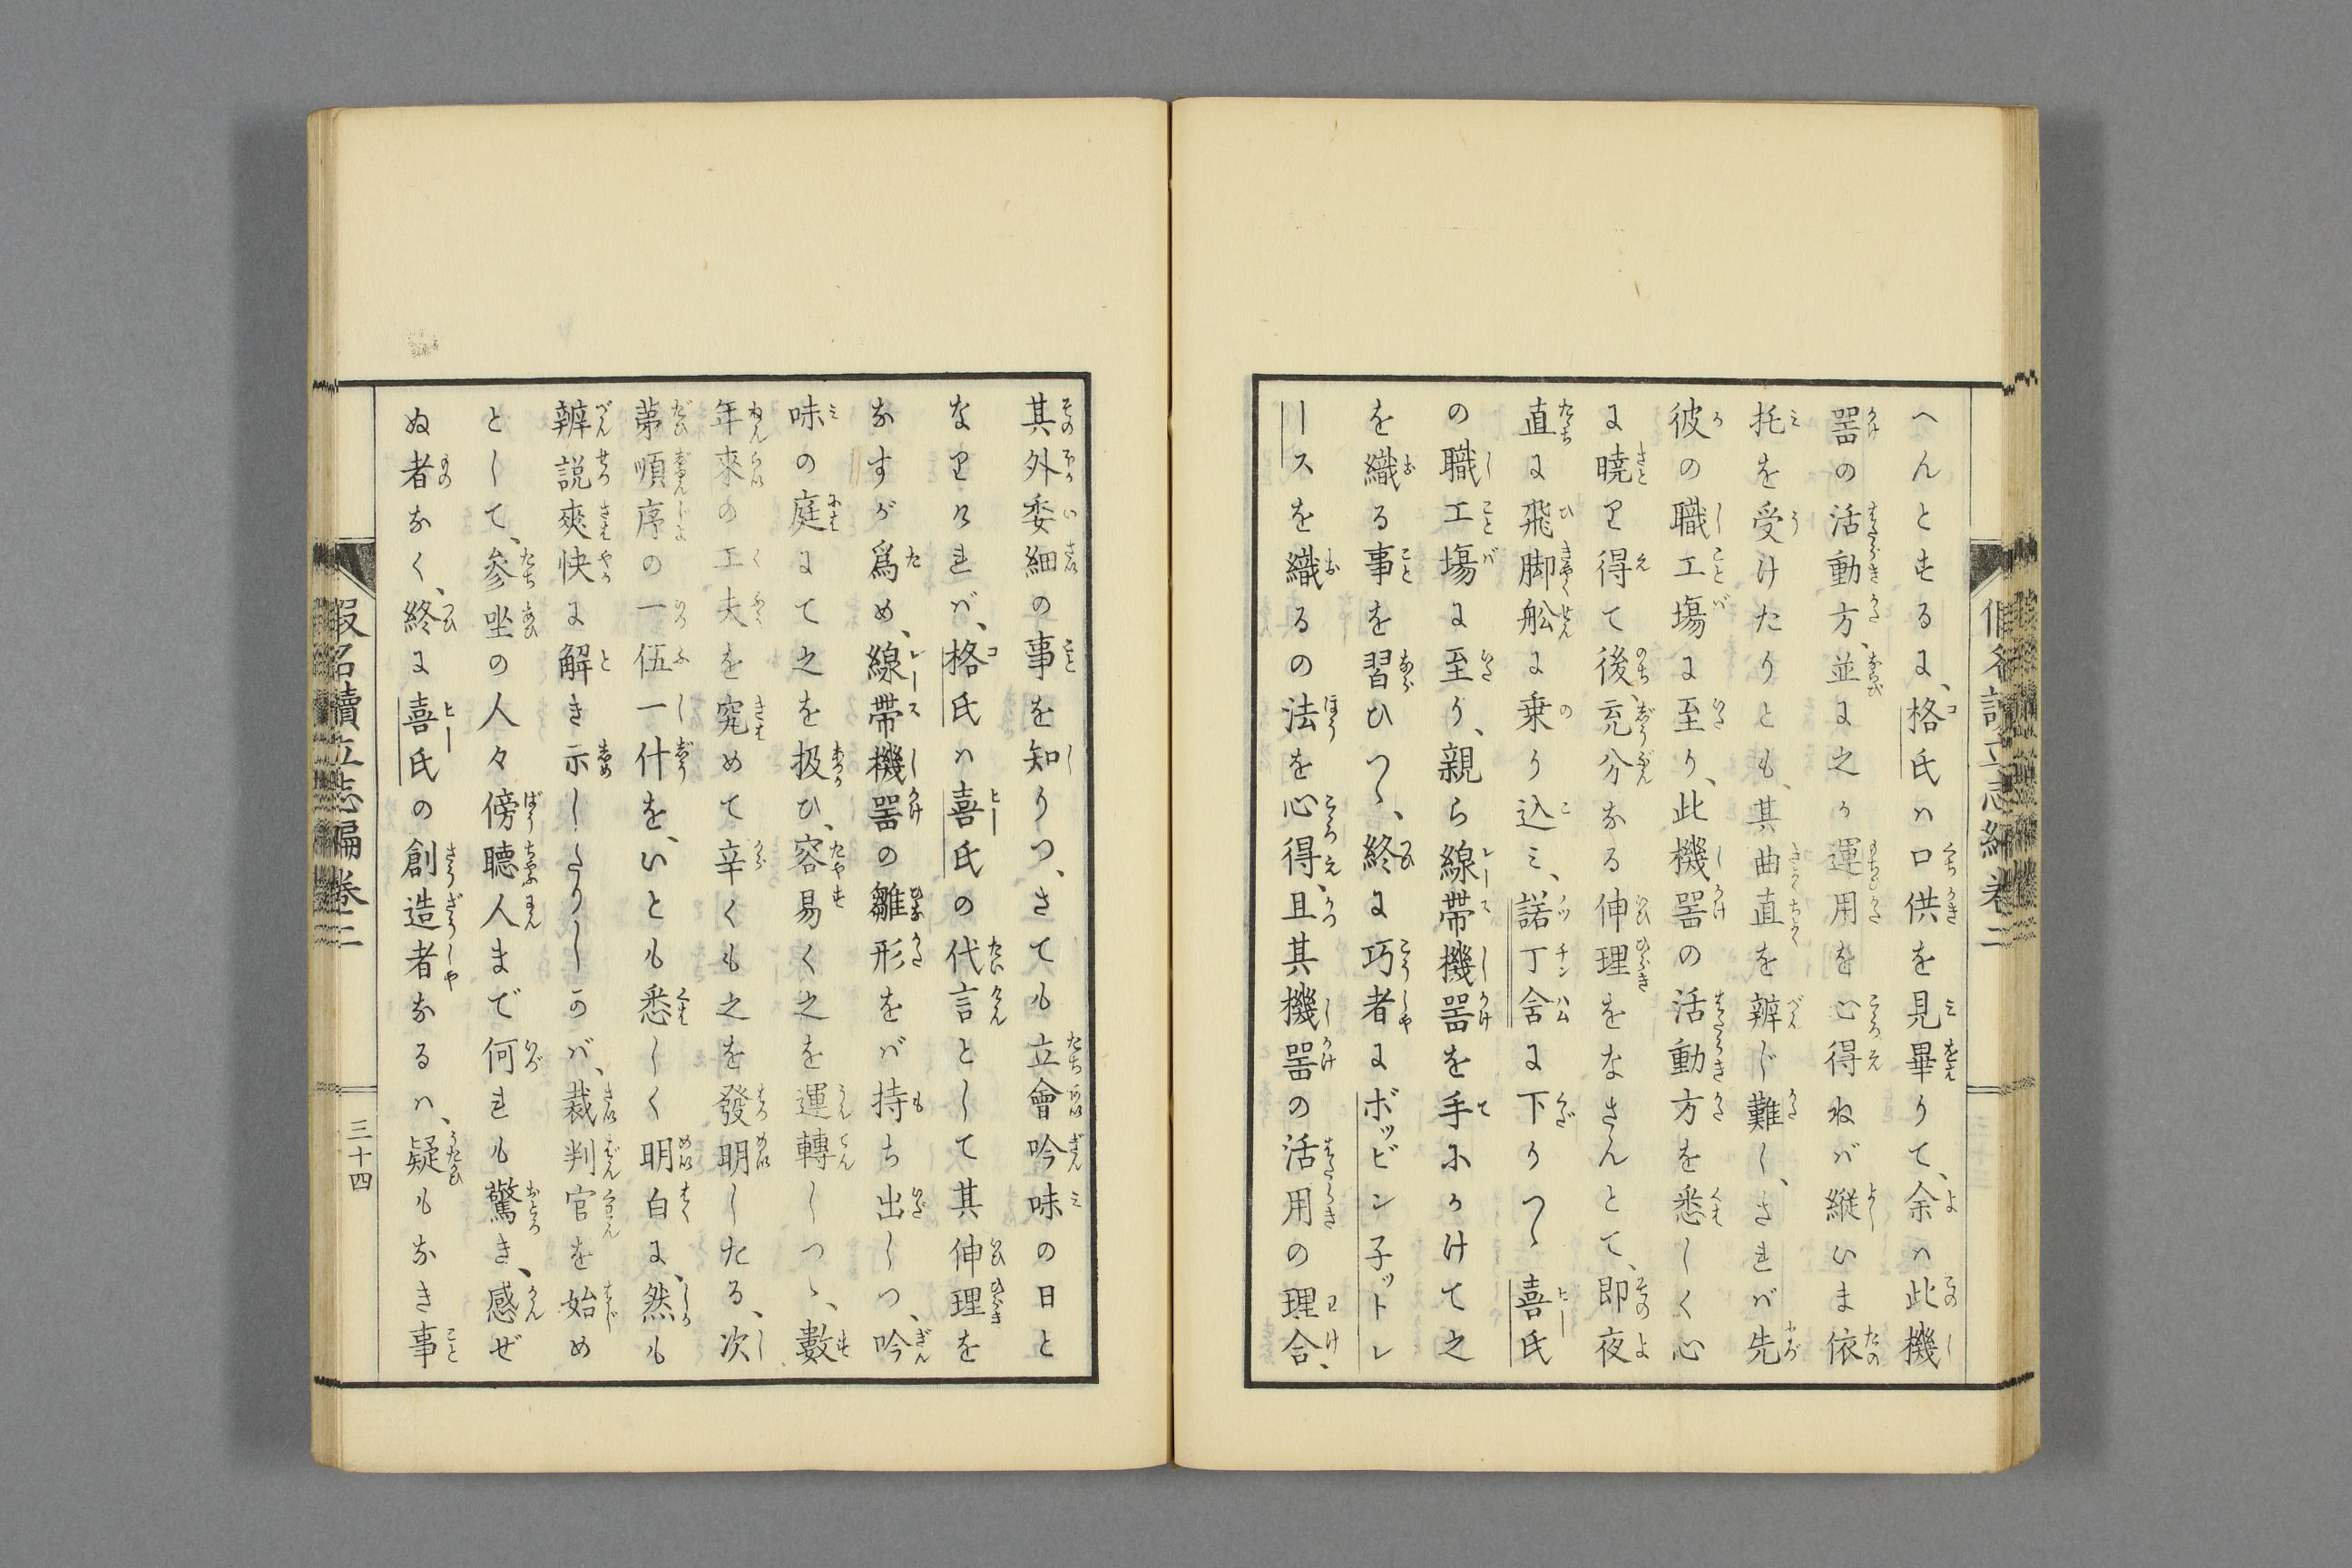 へんとするに、格氏ハ口供を見畢りて、余ハ此機
噐の活動方、並に之が運用を心得ねバ縦いま依
托を受けたりとも、其曲直を辨じ難し、されバ先
彼の職工塲に至り、此機噐の活動方を悉しく心
に曉り得て後、充分なる伸理をなさんとて、即夜
直に飛脚舩に乗り込ミ、諾丁舍に下りつゝ喜氏
の職工塲に至り、親ら線帶機噐を手にかけて之
を織る事を習ひつゝ、終に巧者にボッビン子ットレ
ースを織るの法を心得、且其機噐の活用の理合、
其外委細の事を知りつ、さても立會吟味の日と
なりけれバ、格氏ハ喜氏の代言として其伸理を
なすが爲め、線帶機噐の雛形をバ持ち出しつ、吟
味の庭にて之を扱ひ、容易く之を運轉しつゝ、數
年來の工夫を究めて辛くも之を發明したる、次
第順序の一伍一什を、いとも悉しく明白に、然も
辨説爽快に解き示したりしかバ、裁判官を始め
として、参坐の人々傍聴人まで何れも驚き、感ぜ
ぬ者なく、終に喜氏の創造者なるハ、疑もなき事
假名讀立志編卷二
三十四